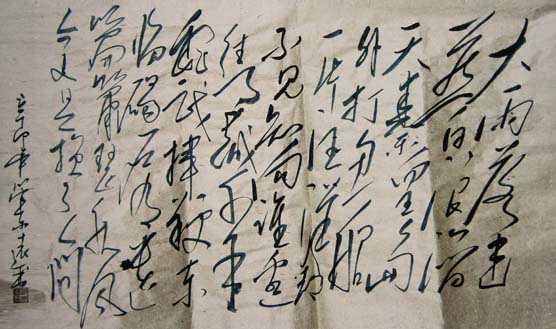 大雨落幽
燕白浪滔
天秦皇岛
外打鱼船
一片汪洋都
不见知向谁边
往事越千年
魏武挥鞭东
临碣石有遗
篇萧瑟秋风
今又是换了人间
辛卯年